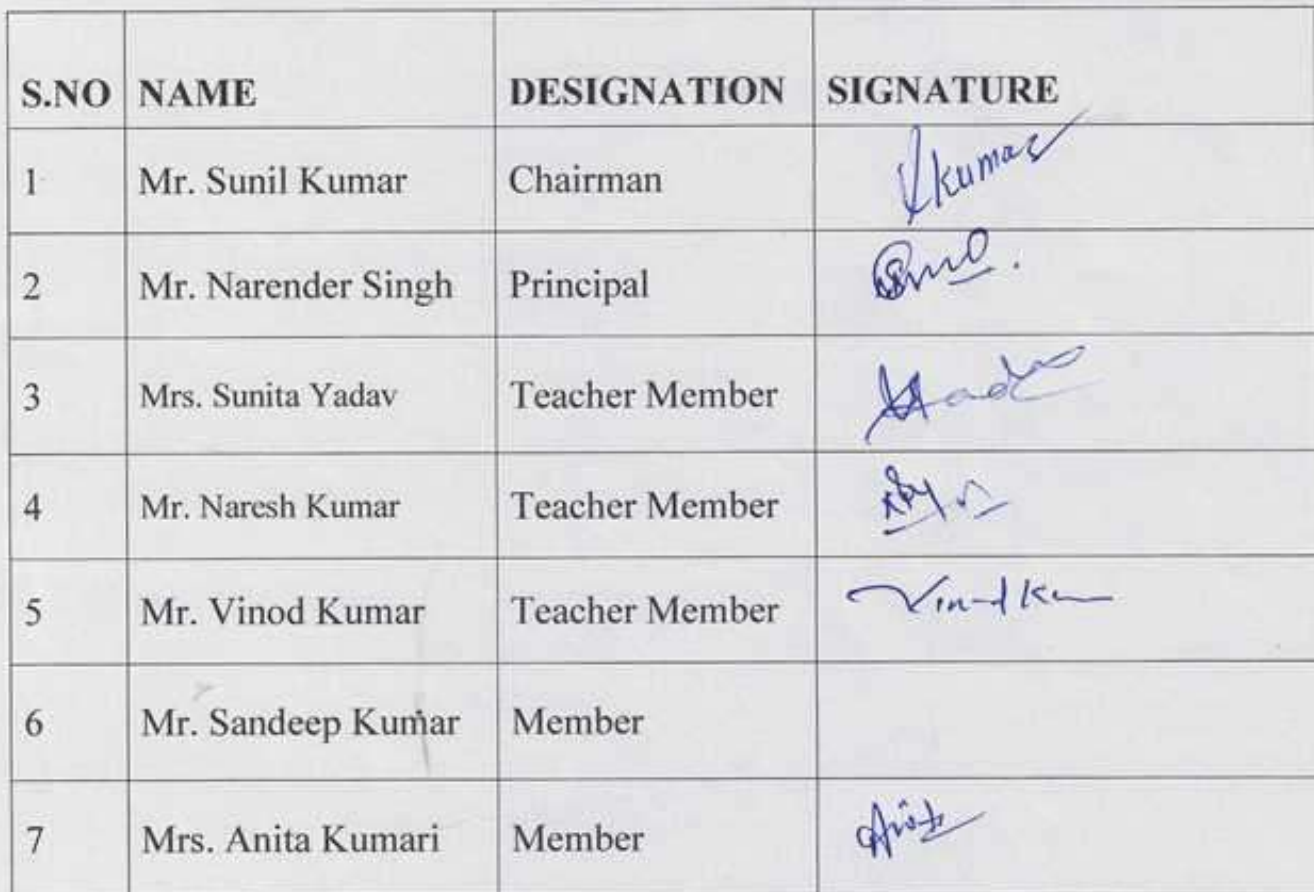 S.NO NAME DESIGNATION SIGNATURE
1 Mr. Sunil Kumar Chairman Kumar
2 Mr. Narender Singh Principal
3 Mrs. Sunita Yadav Teacher Member
4 Mr. Naresh Kumar Teacher Member
5 Mr. Vinod Kumar Teacher Member Vinod
6 Mr. Sandeep Kumar Member
7 Mrs. Anita Kumari Member